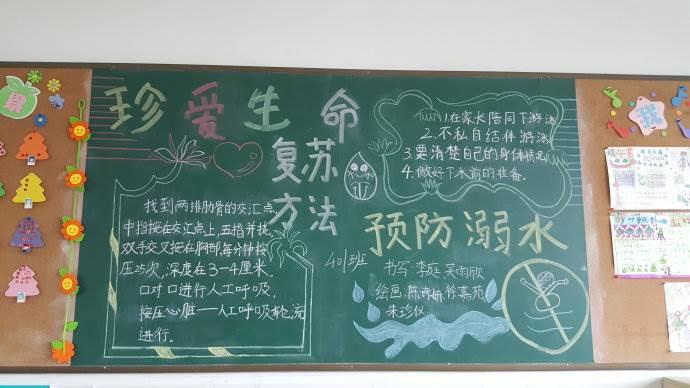 珍爱生命
复苏
方法
找到两排肋骨的交汇点,
中指按在交汇点上,五指并拢
双手交叉按在胸部,每分钟按
压25次,深度在3-4厘米.
口对口进行人工呼吸,
按压心脏——人工呼吸轮流
进行。
1.在家长陪同下游泳
2.不私自结伴游泳
3.要清楚自己的身体情况
4.做好下水前的准备.
预防溺水
401班
书写:李庭 吴雨欣
绘画:陈 徐嘉苑
朱珍仪
我